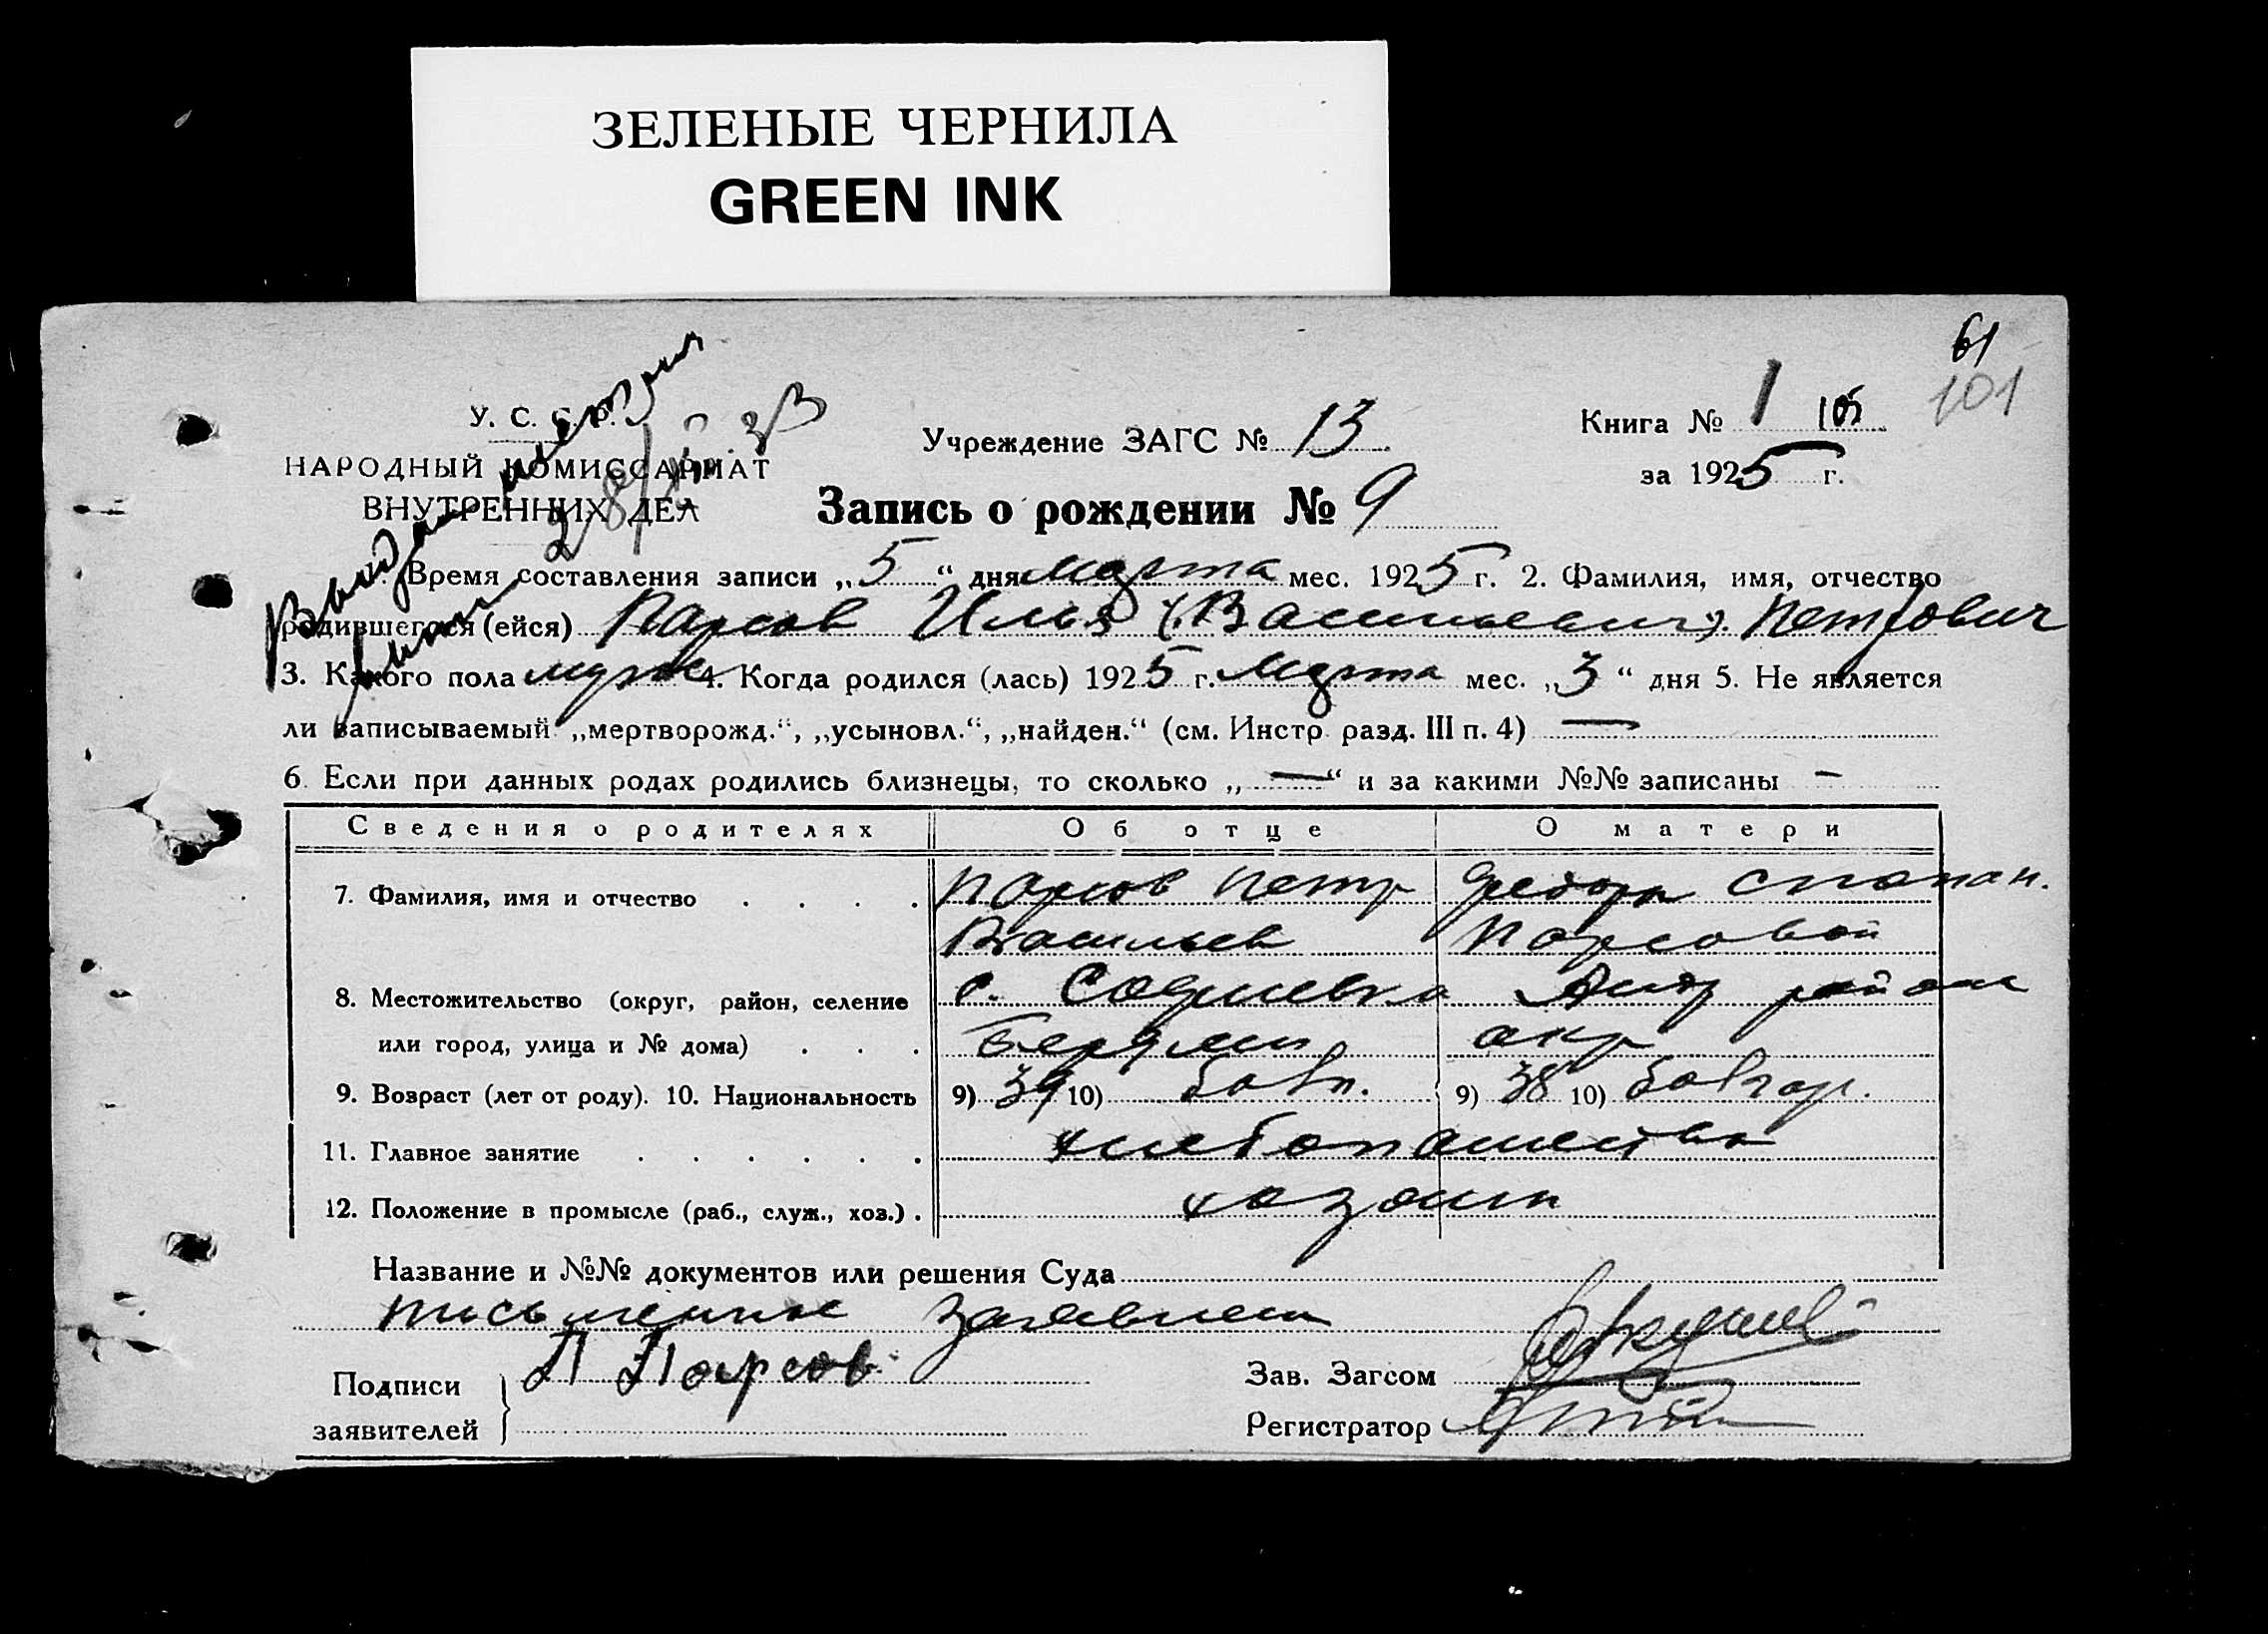 ЗЕЛЕНЫЕ ЧЕРНИЛА
GREEN INK
61
101
У. С. С. Р.
НАРОДНЫЙ КОМИССАРИАТ
ВНУТРЕННИХ ДЕЛ
Учреждение ЗАГС № 13
Книга № 1 105
за 1925 г.
Запись о рождении № 9
1. Время составления записи „5“ дня марта мес. 1925 г. 2. Фамилия, имя, отчество
родившегося (ейся) Парсов Илья (Васильевич) Петрович
3. Какого пола муж 4. Когда родился (лась) 1925 г. Марта мес. „3“ дня 5. Не является
ли записываемый „мертворожд.“, „усыновл.“, „найден.“ (см. Инстр. разд. III п. 4) —
6. Если при данных родах родились близнецы, то сколько „—“ и за какими №№ записаны —
Сведения о родителях Об отце О матери
7. Фамилия, имя и отчество Парсов Петр
Васильев Парсовой
8. Местожительство (округ, район, селение с. район
или город, улица и № дома) окр
9. Возраст (лет от роду). 10. Национальность 9) 39 10) болг. 9) 38 10) болгар.
11. Главное занятие хлебопашество
12. Положение в промысле (раб., служ., хоз.) хозяин
Название и №№ документов или решения Суда
письменное заявление
Подписи П Парсов
заявителей
Зав. Загсом
Регистратор